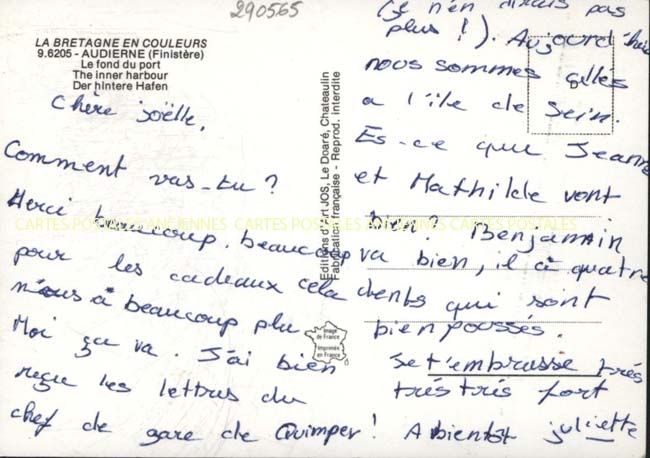 290565
LA BRETAGNE EN COULEURS
9.6205 - AUDIERNE (Finistère)
Le fond du port
The inner harbour
Der hintere Hafen
Chère joëlle,
Comment vas-tu ?
Merci beaucoup, beaucoup
pour les cadeaux cela
nous a beaucoup plu
Moi ça va. J'ai bien
reçu les lettres du
chef de gare de Quimper !
Editions d'Art JOS, Le Doaré, Chateaulin
Fabrication française - Reprod. interdite
Image
de France
Imprimée
en France
(je n'en dirais pas
plus !). Aujourd'hui
nous sommes allés
a l'île de Sein.
Es-ce que Jeanne
et Mathilde vont
bien ? Benjamin
va bien, il a quatre
dents qui sont
bien poussés.
Je t'embrasse trés
trés trés fort
A bientôt juliette
CARTES POSTALES ANCIENNES CARTES POSTALES ANCIENNES CARTES POSTALES